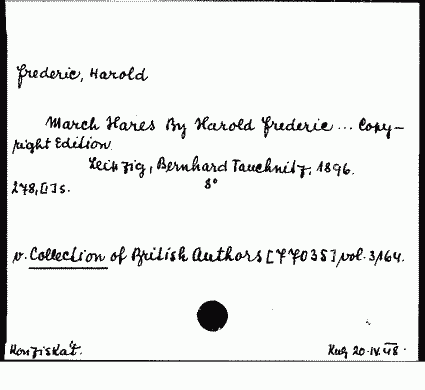 Frederic, Harold
March Hares By Harold Frederic ... Copy-
right Edition.
Leipzig, Bernhard Tauchnitz, 1896.
278, [1] s. 8°
v. Collection of British Authors [77035] vol. 3164.
Konfiskát. 20.IV.48.